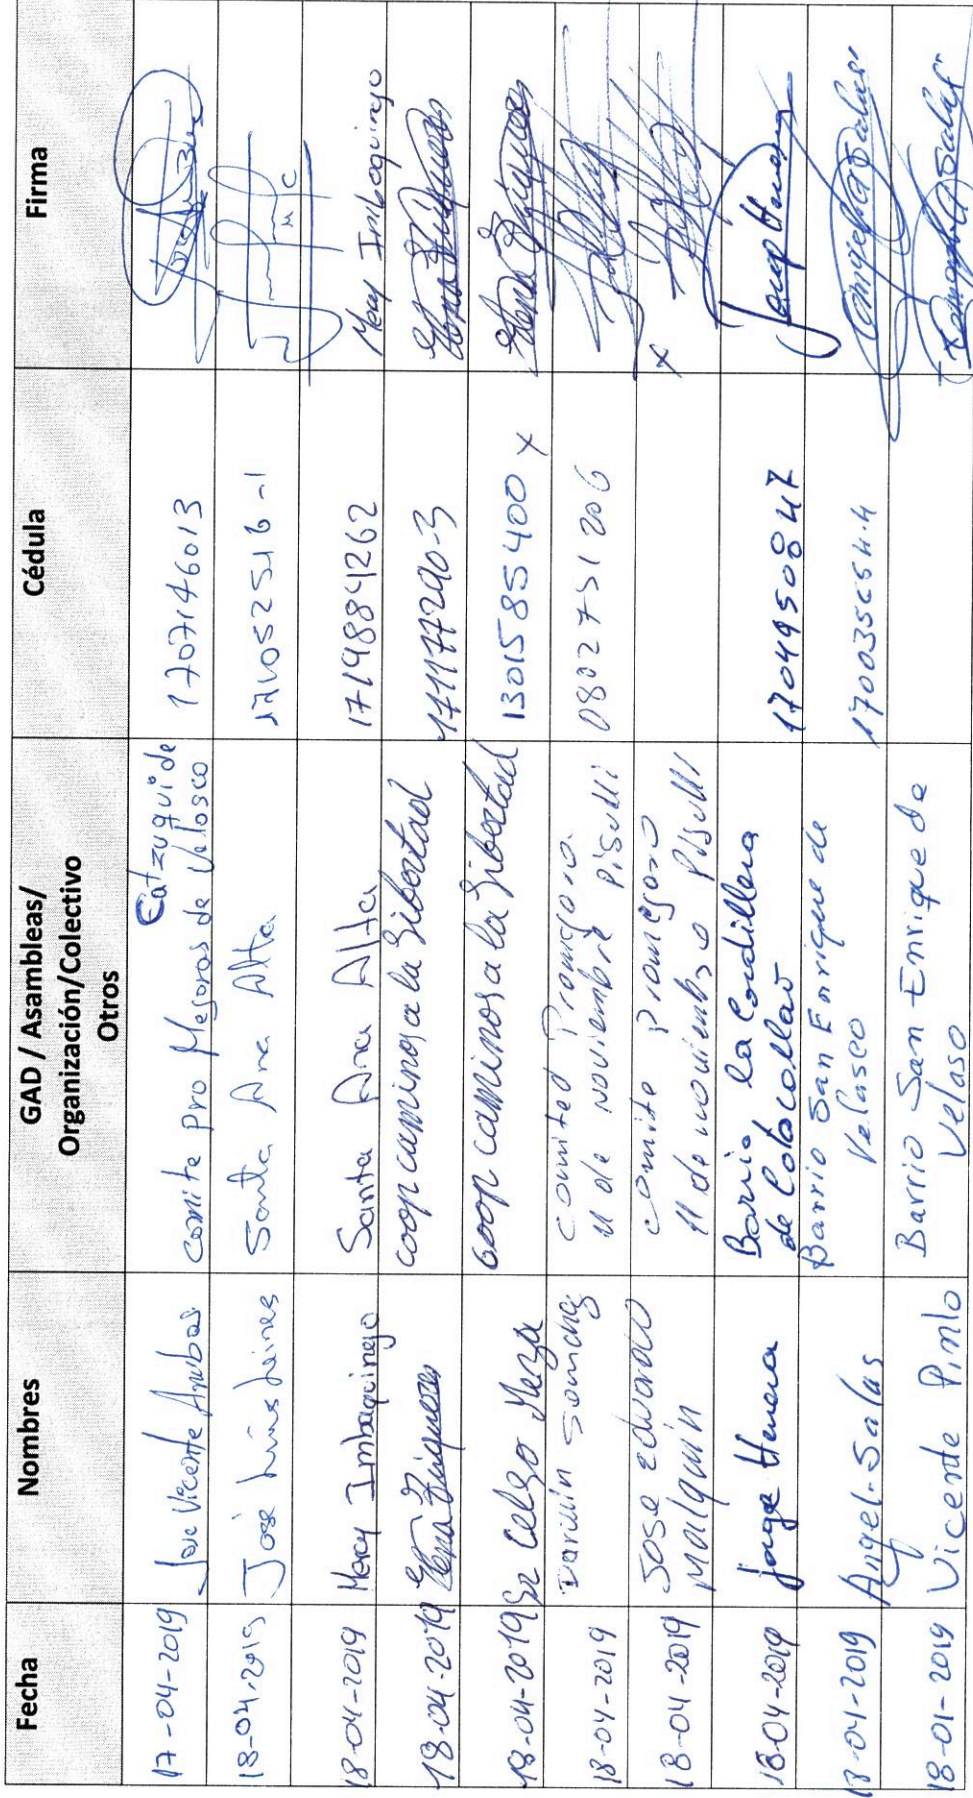 Fecha
Nombres
GAD / Asambleas/
Organización/Colectivo
Otros
Cédula
Firma
17-04-2019
Jose Vicente
Catzuqui de
comite pro Mejoras de Velasco
1707146013
18-04-2019
José Luis
Santa Ana Alta
18-04-2019
Mercy Imbaquingo
Santa Ana Alta
1719884262
Mercy Imbaquingo
18-04-2019
coop caminos a la Libertad
171177290-3
18-04-2019
Sr Celso
coop caminos a la Libertad
1301585400 x
18-04-2019
Darilin
comited Promejora
11 de noviembre Pisulli
0802751206
18-04-2019
Jose Eduardo
Malquin
comite Promejora
11 de noviembre Pisulli
x
18-04-2019
jorge Herrera
Barrio la Cordillera
de Cotocollao
1704950847
Jorge Herrera
18-04-2019
Angel-Salas
Barrio San Enrique de
Velasco
170035654-4
Angel Salas
18-01-2019
Vicente Pinto
Barrio San Enrique de
Velaso